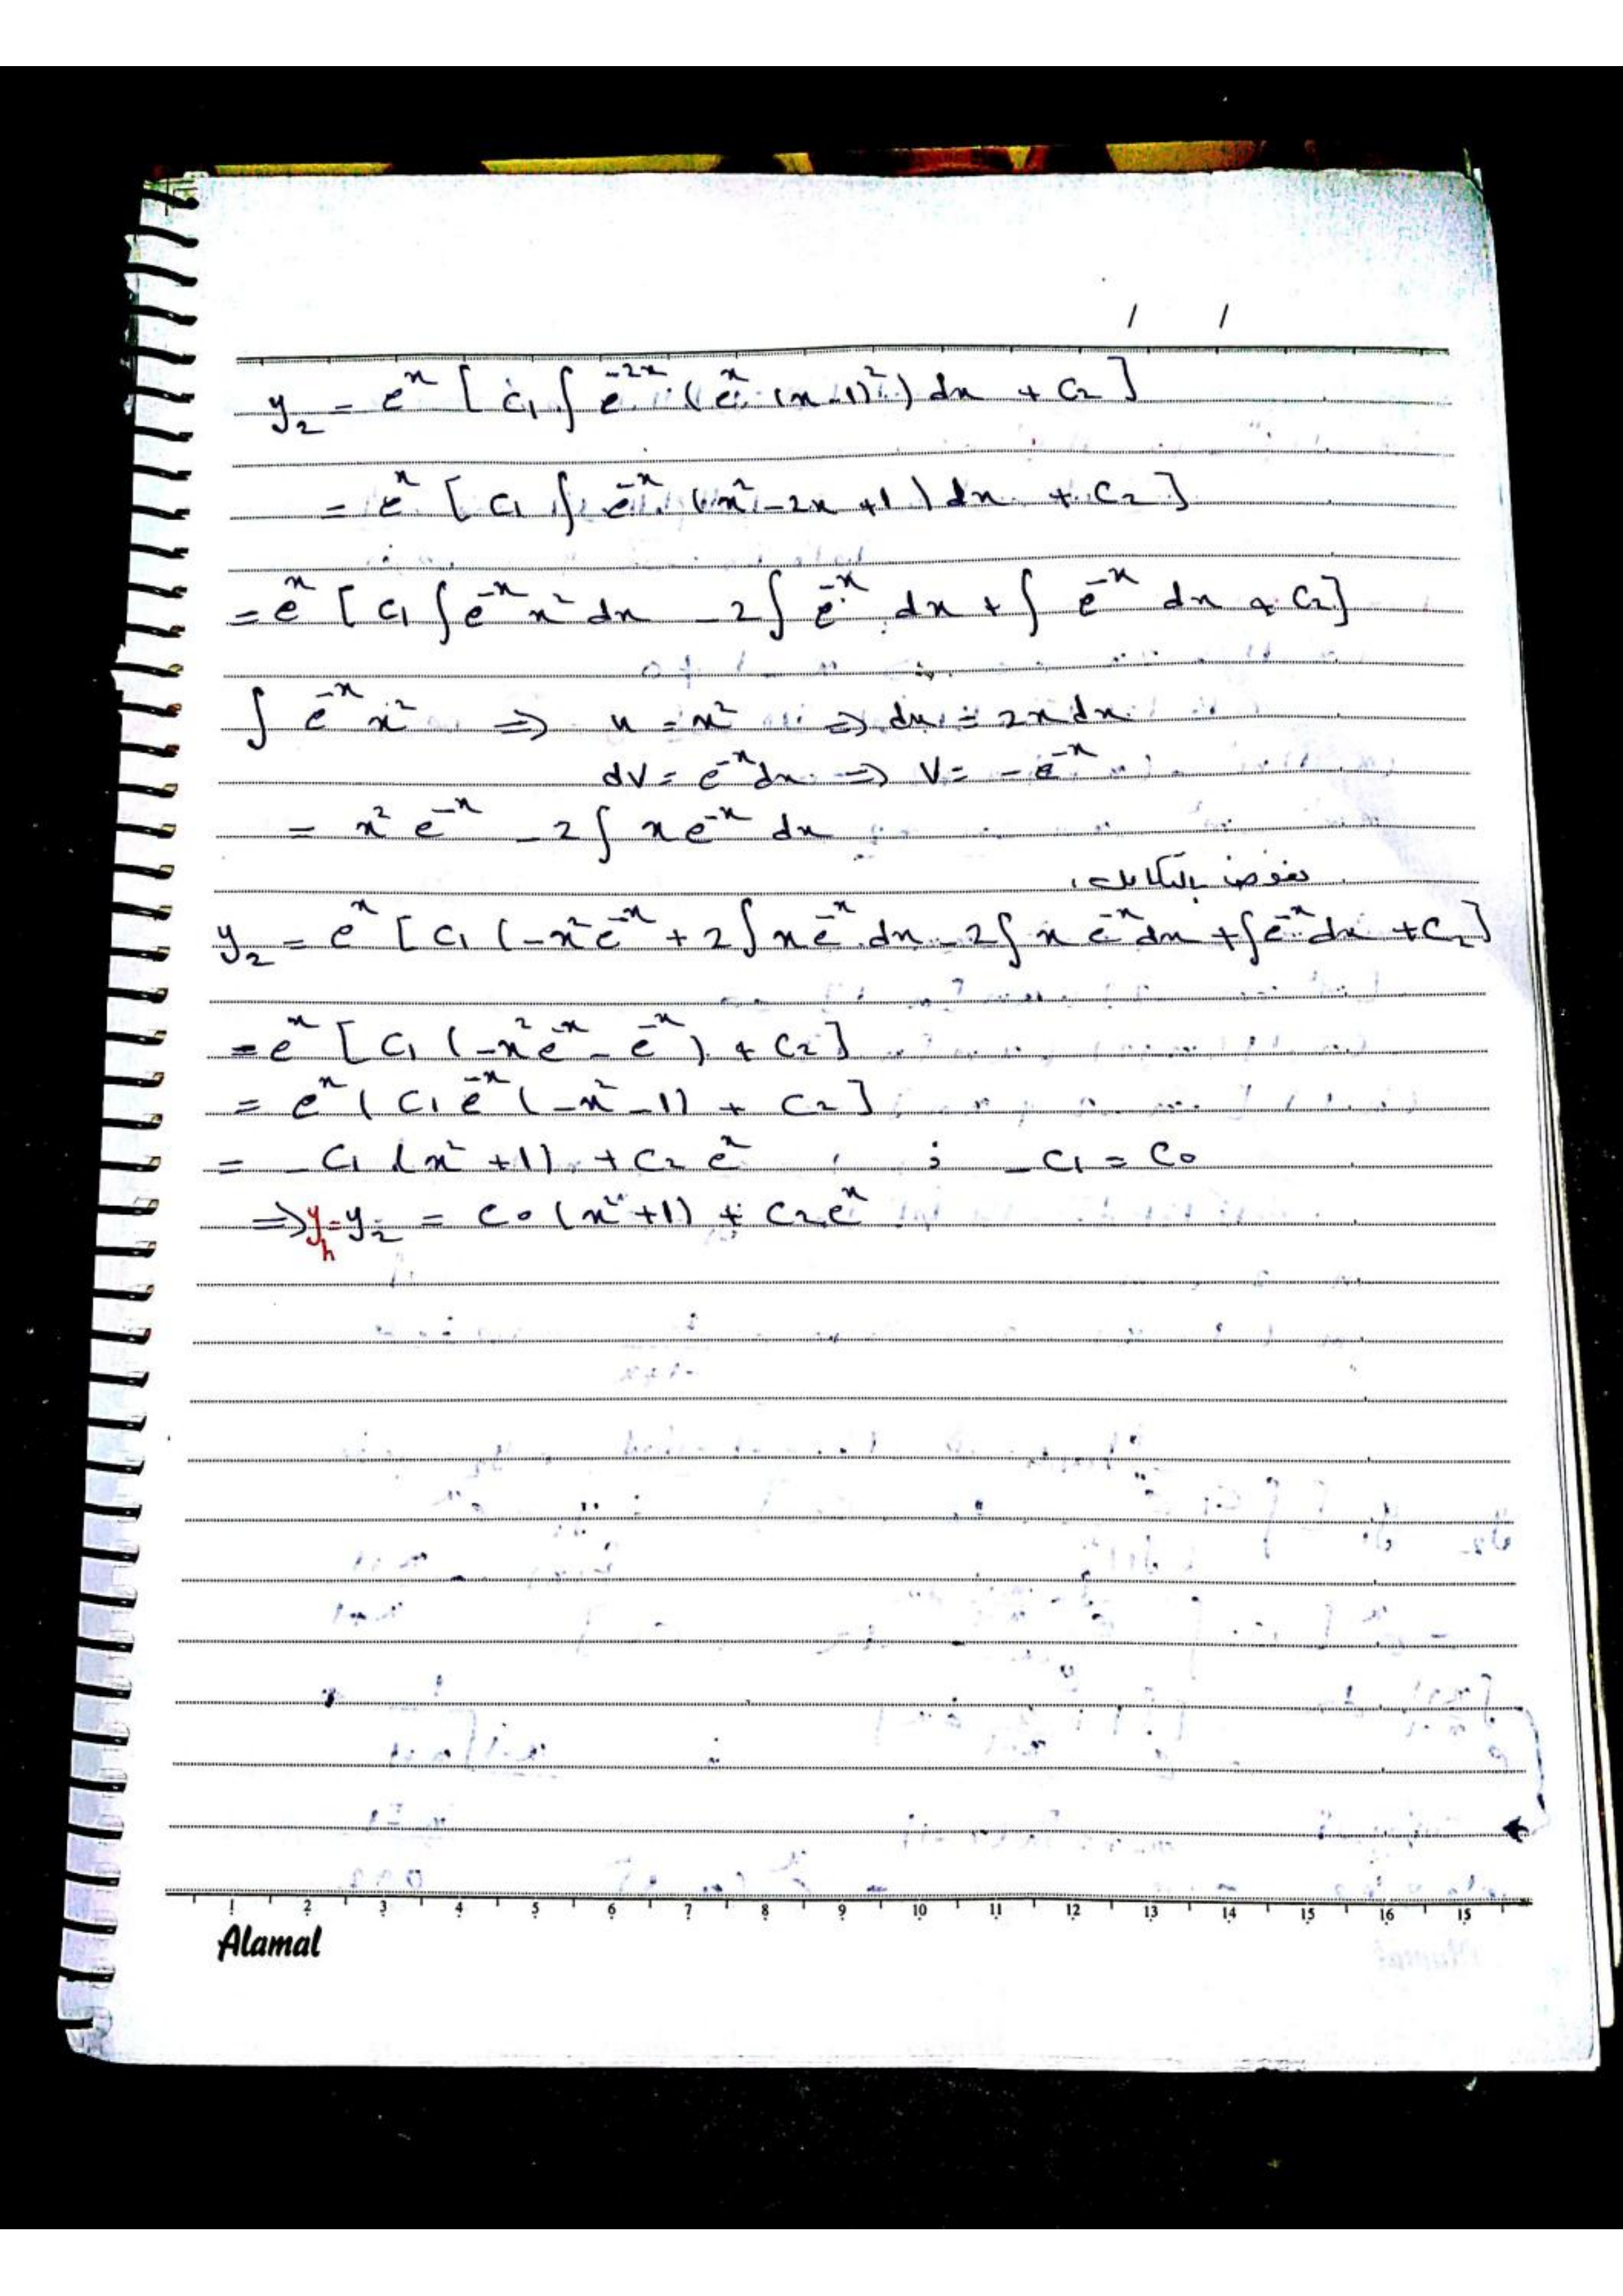 / /
y₂ = eˣ [ c₁ ∫ e⁻²ˣ (eˣ (x-1)²) dx + c₂ ]
= eˣ [ c₁ ∫ e⁻ˣ (x² - 2x + 1) dx + c₂ ]
= eˣ [ c₁ ∫ e⁻ˣ x² dx - 2 ∫ e⁻ˣ dx + ∫ e⁻ˣ dx + c₂ ]
∫ e⁻ˣ x² ⇒ u = x² ⇒ du = 2x dx
dv = e⁻ˣ dx ⇒ v = - e⁻ˣ
= x² e⁻ˣ - 2 ∫ x e⁻ˣ dx
نعوض بالتكامل
y₂ = eˣ [ c₁ (-x² e⁻ˣ + 2 ∫ x e⁻ˣ dx - 2 ∫ x e⁻ˣ dx + ∫ e⁻ˣ dx + c₂ ]
= eˣ [ c₁ (-x² e⁻ˣ - e⁻ˣ) + c₂ ]
= eˣ ( c₁ e⁻ˣ (-x² - 1) + c₂ ]
= - c₁ (x² + 1) + c₂ eˣ ; - c₁ = c₀
⇒ y_h = y₂ = c₀ (x² + 1) + c₂ eˣ
1 2 3 4 5 6 7 8 9 10 11 12 13 14 15 16 15
Alamal